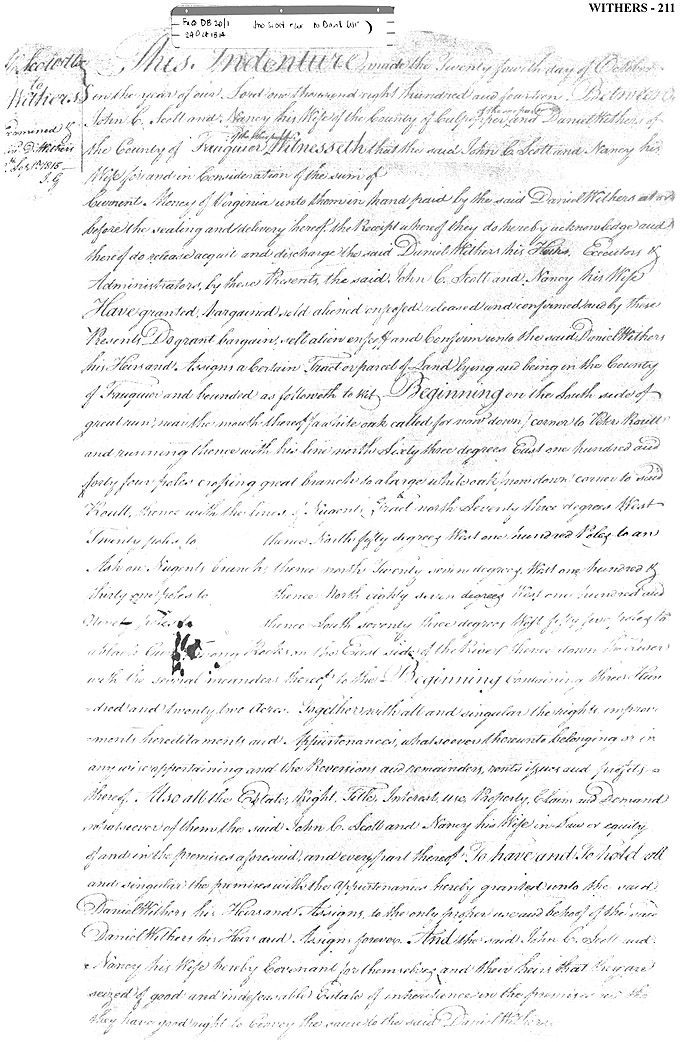 WITHERS - 211
FxCo DB 20/1
24 Oct 1814
Jno Scott + ux to Danl Wi
Scott & Ux
to
Withers
Examined &
Withers
J G
This Indenture, made the Twenty fourth day of October
in the year of our Lord one thousand eight hundred and fourteen Between
John C. Scott and Nancy his Wife of the County of Culpeper of the one part and Daniel Withers of
the County of Fauquier of the other part Witnesseth that the said John C Scott and Nancy his
Wife for and in Consideration of the sum of
Current Money of Virginia unto them in hand paid by the said Daniel Withers at or
before the sealing and delivery hereof the Receipt whereof they do hereby acknowledge and
thereof do release acquit and discharge the said Daniel Withers his Heirs, Executors &
Administrators, by these Presents, the said John C. Scott and Nancy his Wife
Have granted, bargained, sold aliened enfeofed released and confirmed and by these
Presents Do grant bargain, sell alien enfeoff and Confirm unto the said Daniel Withers
his Heirs and Assigns a Certain Tract or parcel of Land lying and being in the County
of Fauquier and bounded as followeth to wit Beginning on the South side of
great run, near the mouth thereof (a white oak called for now down) corner to Peter Routt
and running thence with his line north Sixty three degrees East one hundred and
forty four poles crossing great branch to a large white oak (now down) corner to said
Routt, thence with the lines of Nugents Tract north Seventy three degrees West
Twenty poles to thence North fifty degrees West one hundred Poles to an
Ash on Nugents branch, thence north Twenty seven degrees, West one hundred &
thirty one poles to thence North eighty seven degrees West one hundred and
poles to thence South seventy three degrees West fifty five poles to
Rocks on the East side of the River thence down the River
with the several meanders thereof to the Beginning Containing three Hun
-dred and twenty two Acres. Together with all and singular the rights improve
-ments hereditaments and Appurtenances, whatsoever thereunto belonging or in
any wise appertaining and the Reversions and remainders, rents issues and profits =
thereof. Also all the Estate, Right, Title, Interest, use, Property, Claim and Demand
whatsoever of them the said John C. Scott and Nancy his Wife in Law or equity
of and in the premises aforesaid, and every part thereof To have and To hold all
and singular the premises with the appurtenances hereby granted unto the said
Daniel Withers his Heirs and Assigns, to the only proper use and behoof of the said
Daniel Withers his Heirs and Assigns forever. And the said John C. Scott and
Nancy his Wife hereby Covenant for themselves and their heirs that they are
seized of good and indefeasable Estate of inheritence in the premises
they have good right to Convey the same to the said Daniel Withers